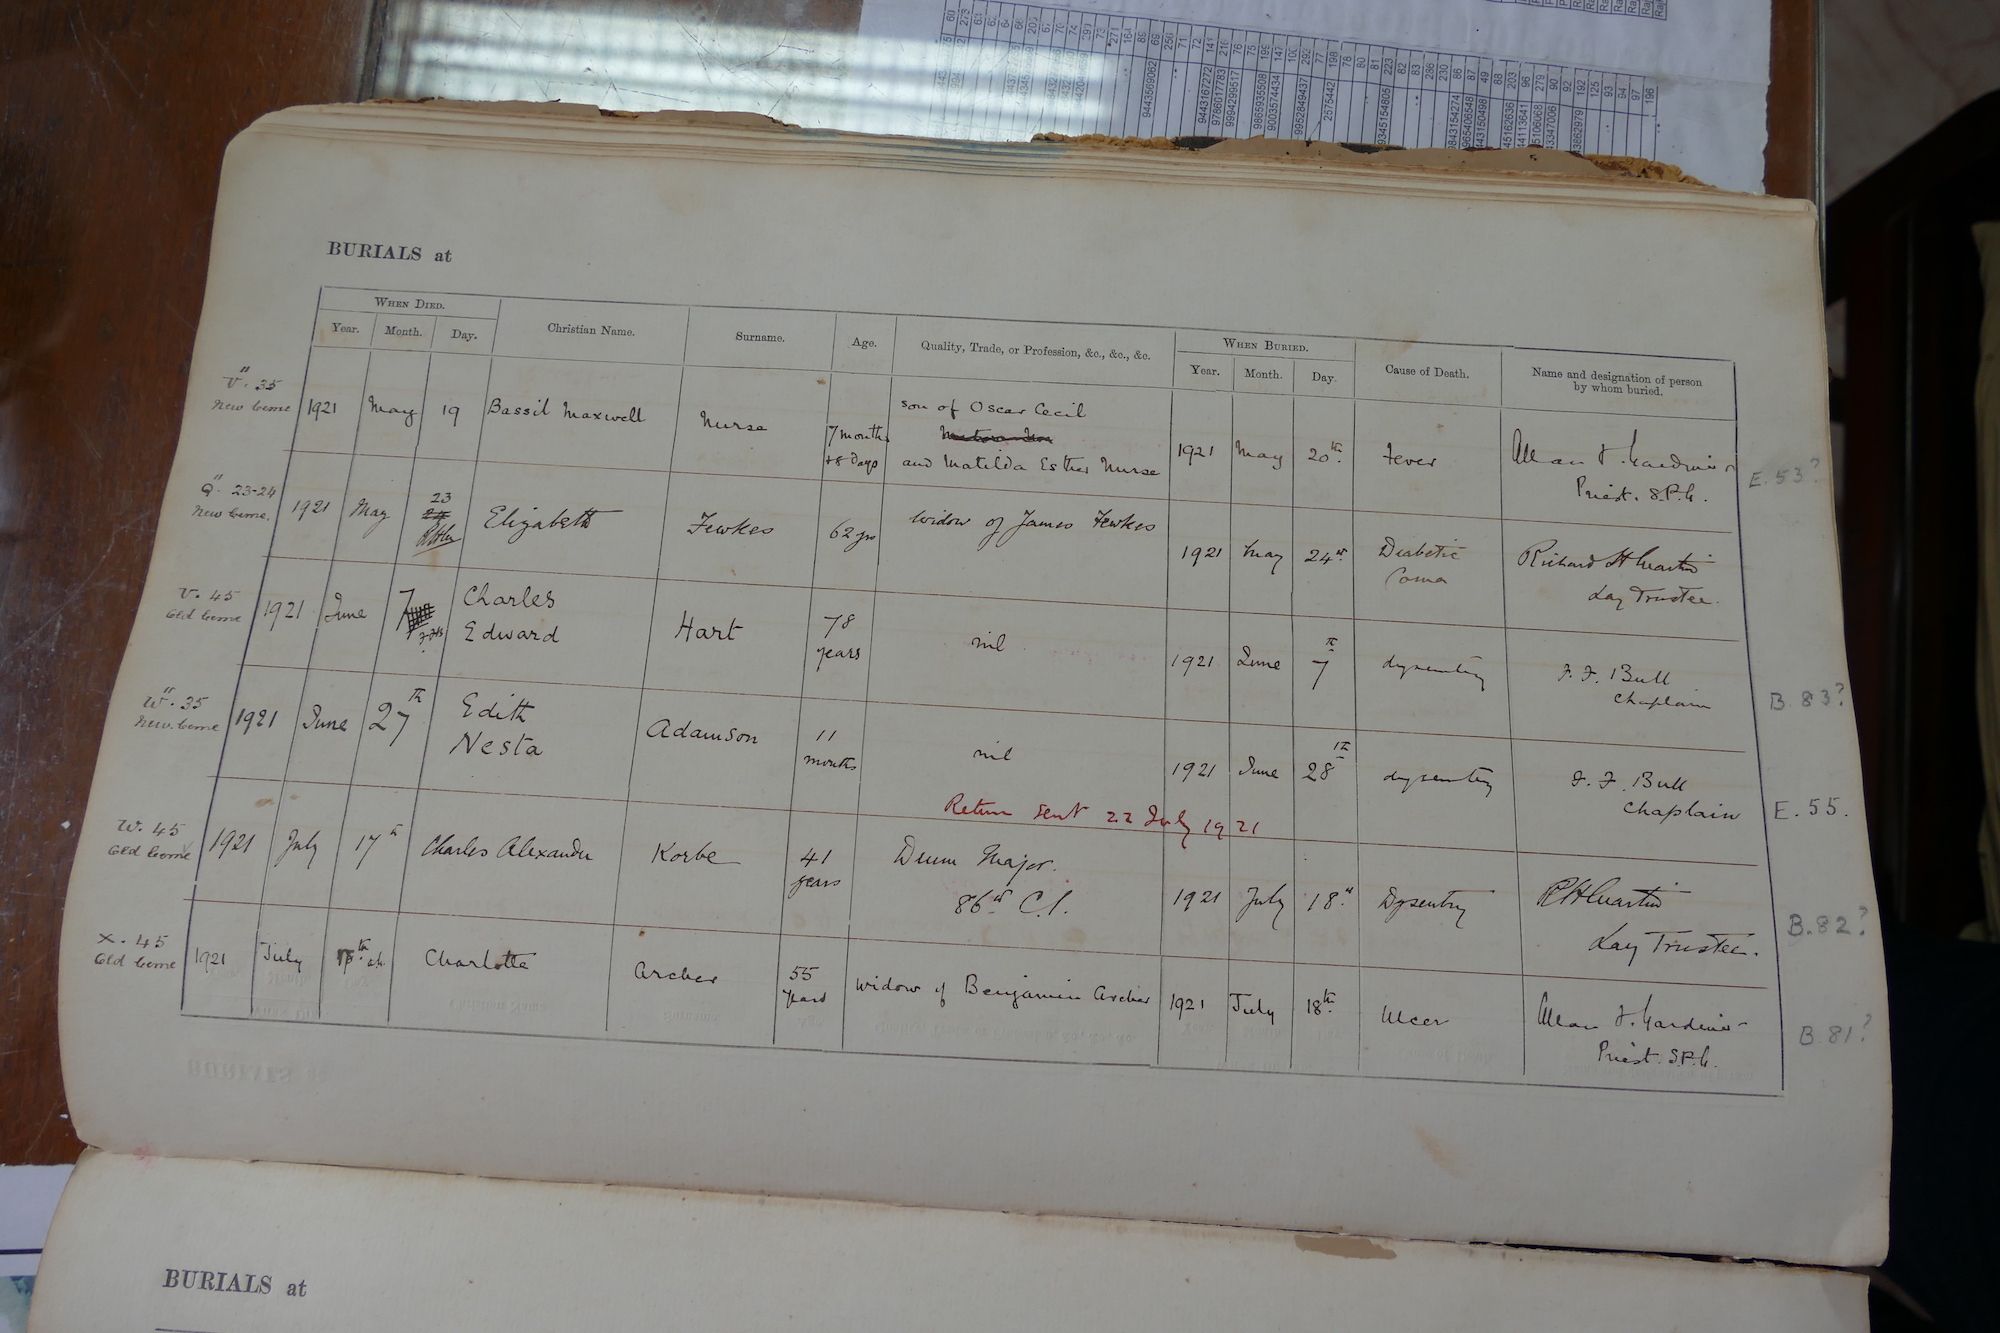 BURIALS at
WHEN DIED.
Year. Month. Day. Christian Name. Surname. Age. Quality, Trade, or Profession, &c., &c., &c.
WHEN BURIED.
Year. Month. Day. Cause of Death. Name and designation of person
by whom buried.
V". 35
New Ceme 1921 May 19 Bassil Maxwell Nurse 7 months
+8 Days son of Oscar Cecil
and Matilda Esther Nurse 1921 May 20th. Fever Allan F. Gardiner
Priest. S.P.G. E. 53?
Q". 23-24
New Ceme. 1921 May 23 Elizabeth Fewkes 62 yrs widow of James Fewkes 1921 May 24th. Diabetic
Coma Richard H Martin
Lay Trustee.
V. 45
Old Ceme 1921 June 7 Charles
Edward Hart 78
years nil 1921 June 7th dysentery F. F. Bull
Chaplain B. 83?
W". 35
New. Ceme 1921 June 27th Edith
Nesta Adamson 11
months nil 1921 June 28th dysentery F. F. Bull
Chaplain E. 55.
Return sent 22 July 1921
W. 45
Old Ceme 1921 July 17th Charles Alexander Korbe 41
years Drum Major.
86th C.I. 1921 July 18th. Dysentry R H Martin
Lay Trustee. B. 82?
X. 45
Old Ceme 1921 July Charlotte Archer 55
years widow of Benjamin Archer 1921 July 18th. Ulcer Allan F. Gardiner
Priest. S.P.G. B. 81?
BURIALS at